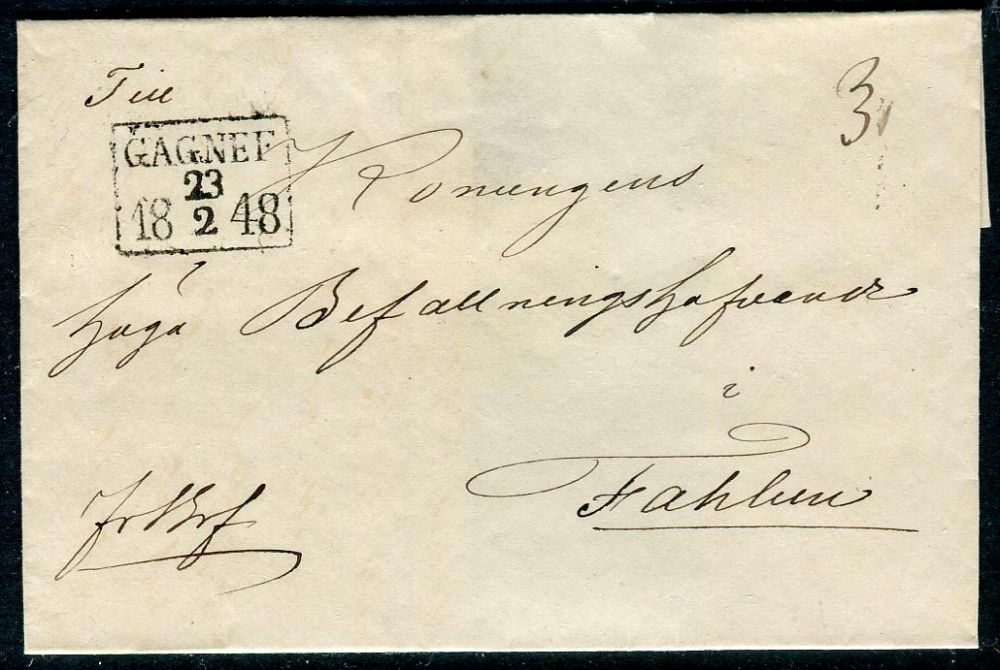 Till
3
GAGNEF
23
18 2 48
Konungens
höga Befallningshafvande
i
Fahlun